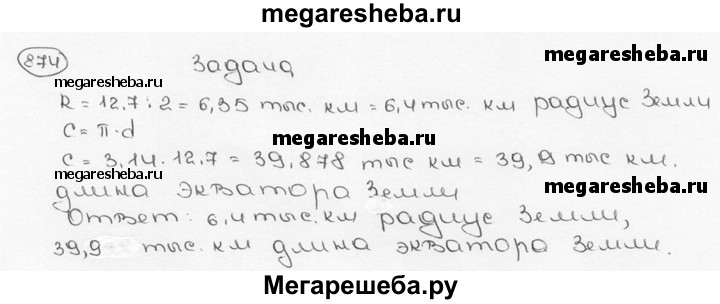 megaresheba.ru
874 Задача
megaresheba.ru
megaresheba.ru
R = 12,7 : 2 = 6,35 тыс. км = 6,4 тыс. км радиус Земли
C = π · d
megaresheba.ru
C = 3,14 · 12,7 = 39,878 тыс км = 39,9 тыс км.
длина экватора Земли
megaresheba.ru
Ответ: 6,4 тыс. км радиус Земли,
39,9 тыс. км длина экватора Земли.
Мегарешеба.ру